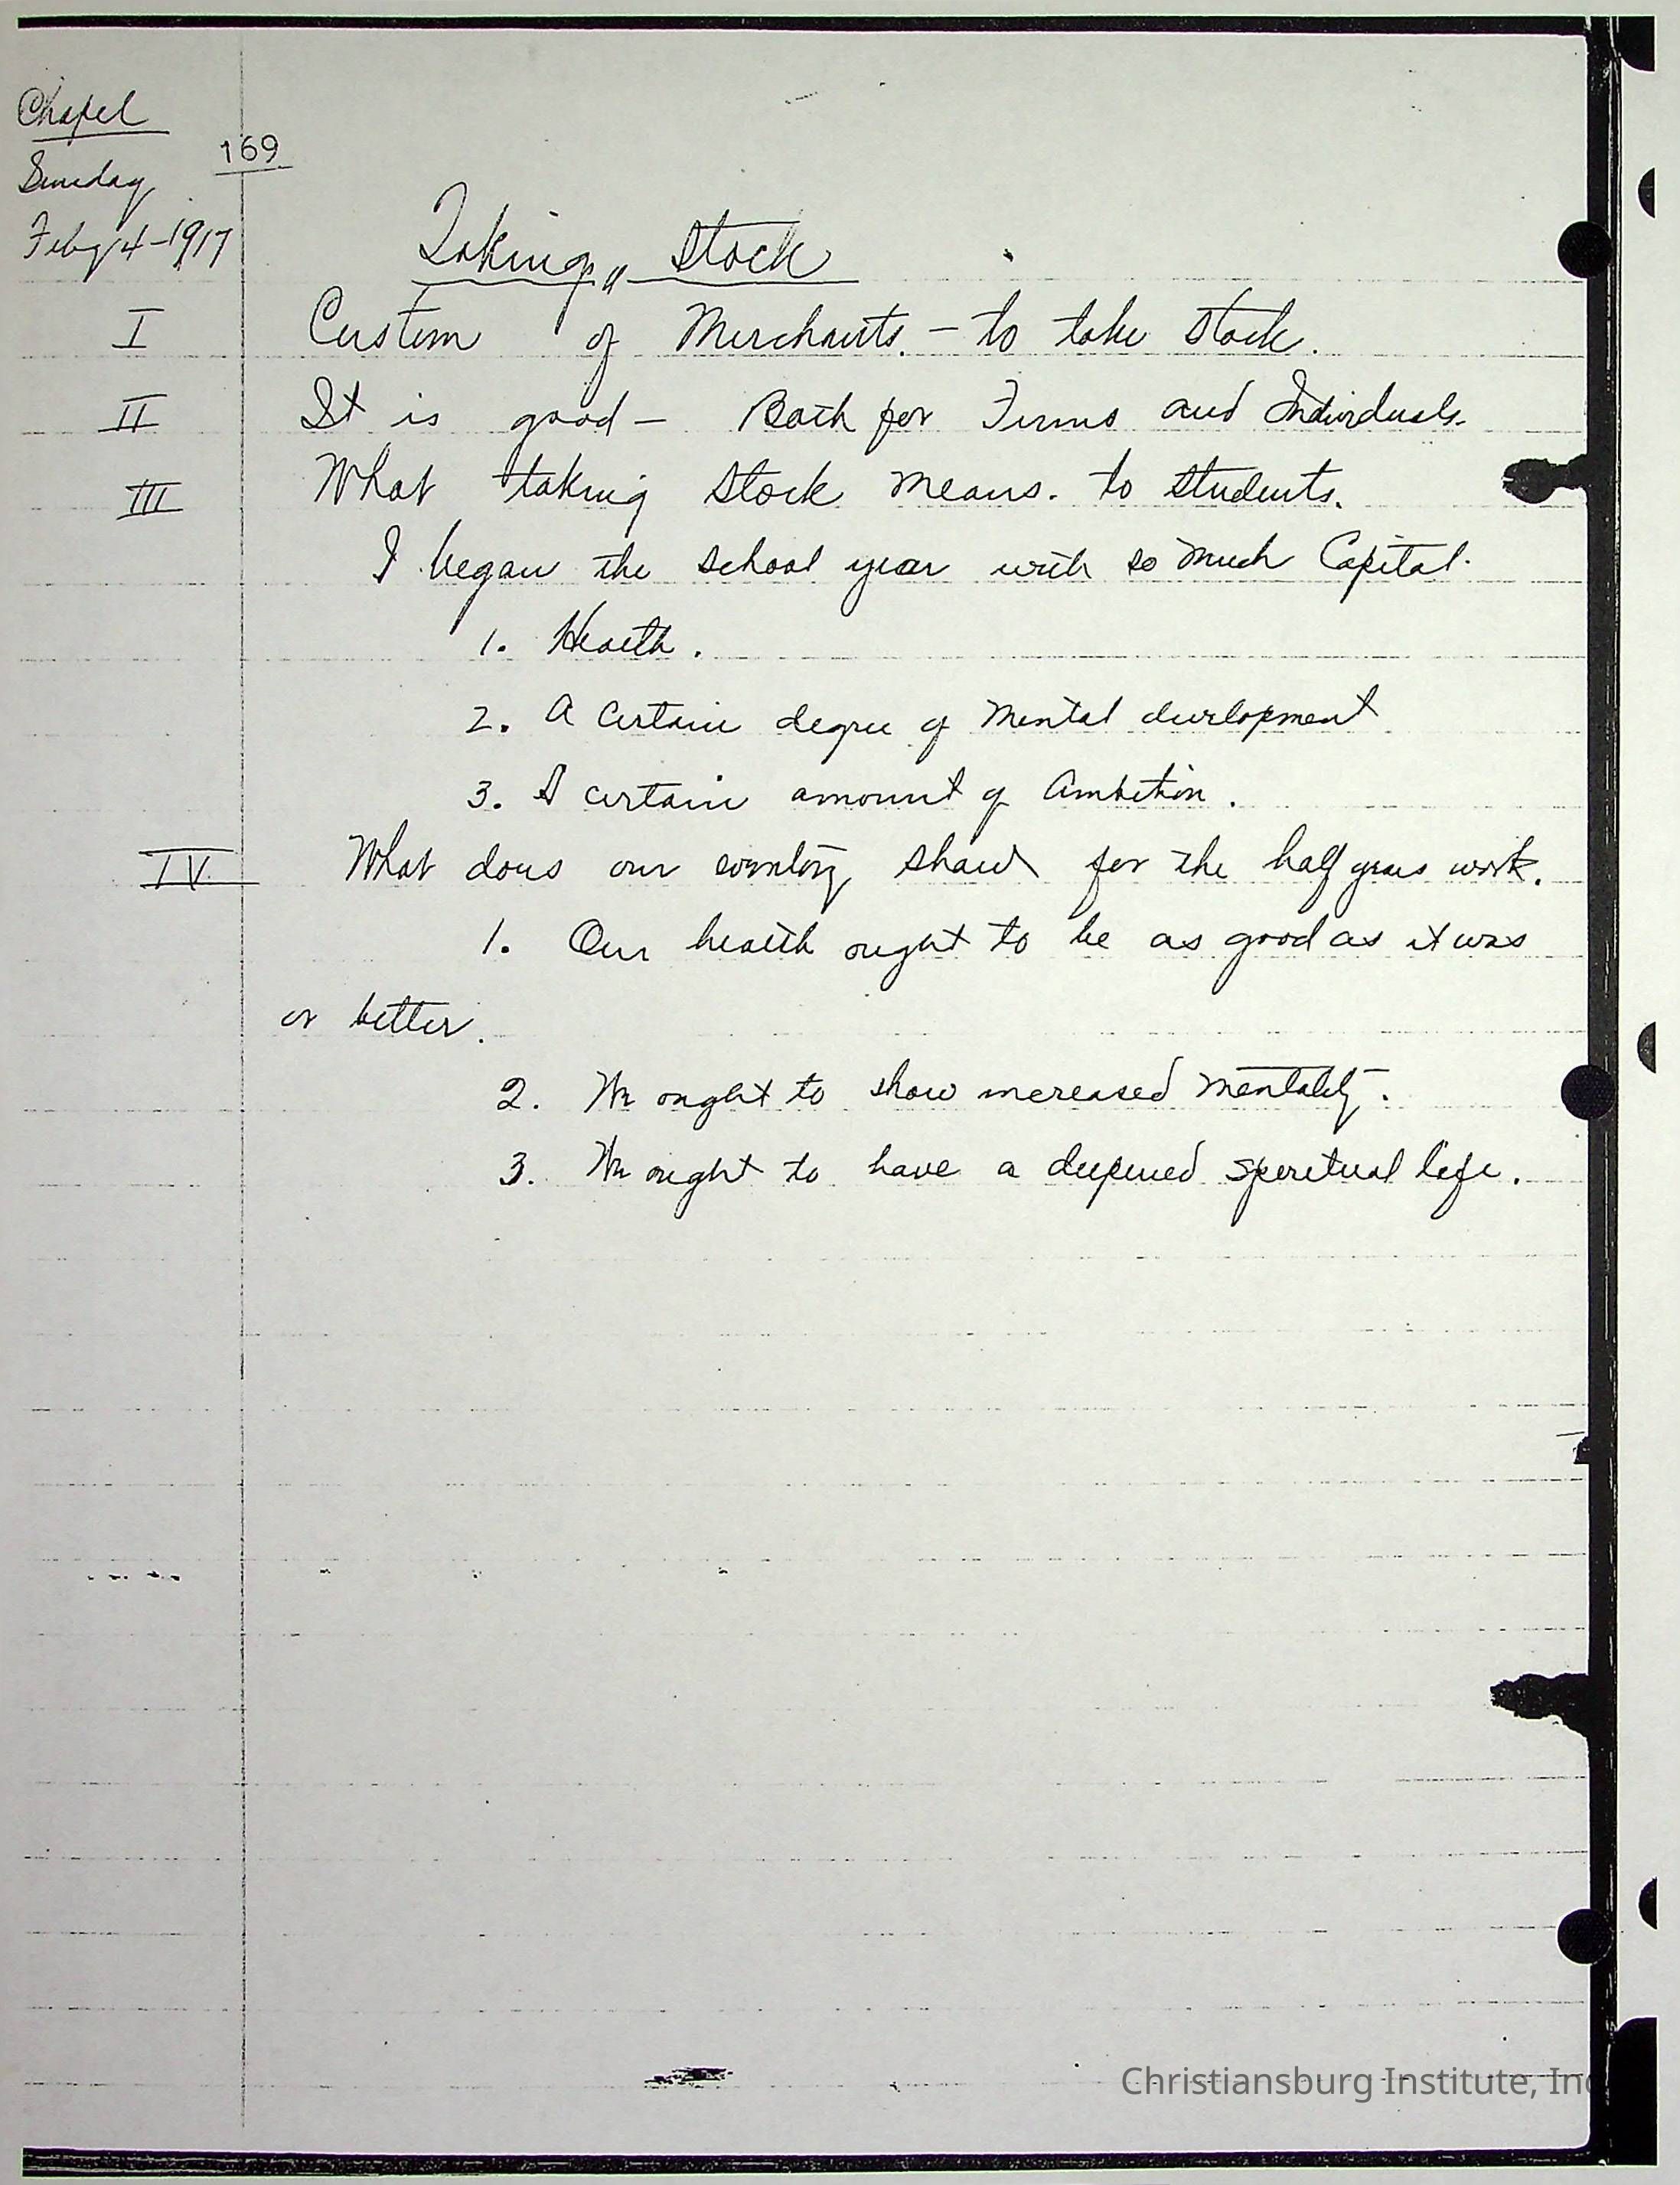 Chapel
169
Sunday
Feby 4-1917
Taking Stock
I Custom of Merchants. - to take stock.
II It is good - Both for Firms and Individuals.
III What taking stock means. to students.
I began the school year with so much Capital.
1. Health.
2. A certain degree of mental development
3. A certain amount of Ambition.
IV What does our show for the half years work.
1. Our health ought to be as good as it was
or better.
2. We ought to show increased mentality.
3. We ought to have a deepened speretual life.
Christiansburg Institute, Inc